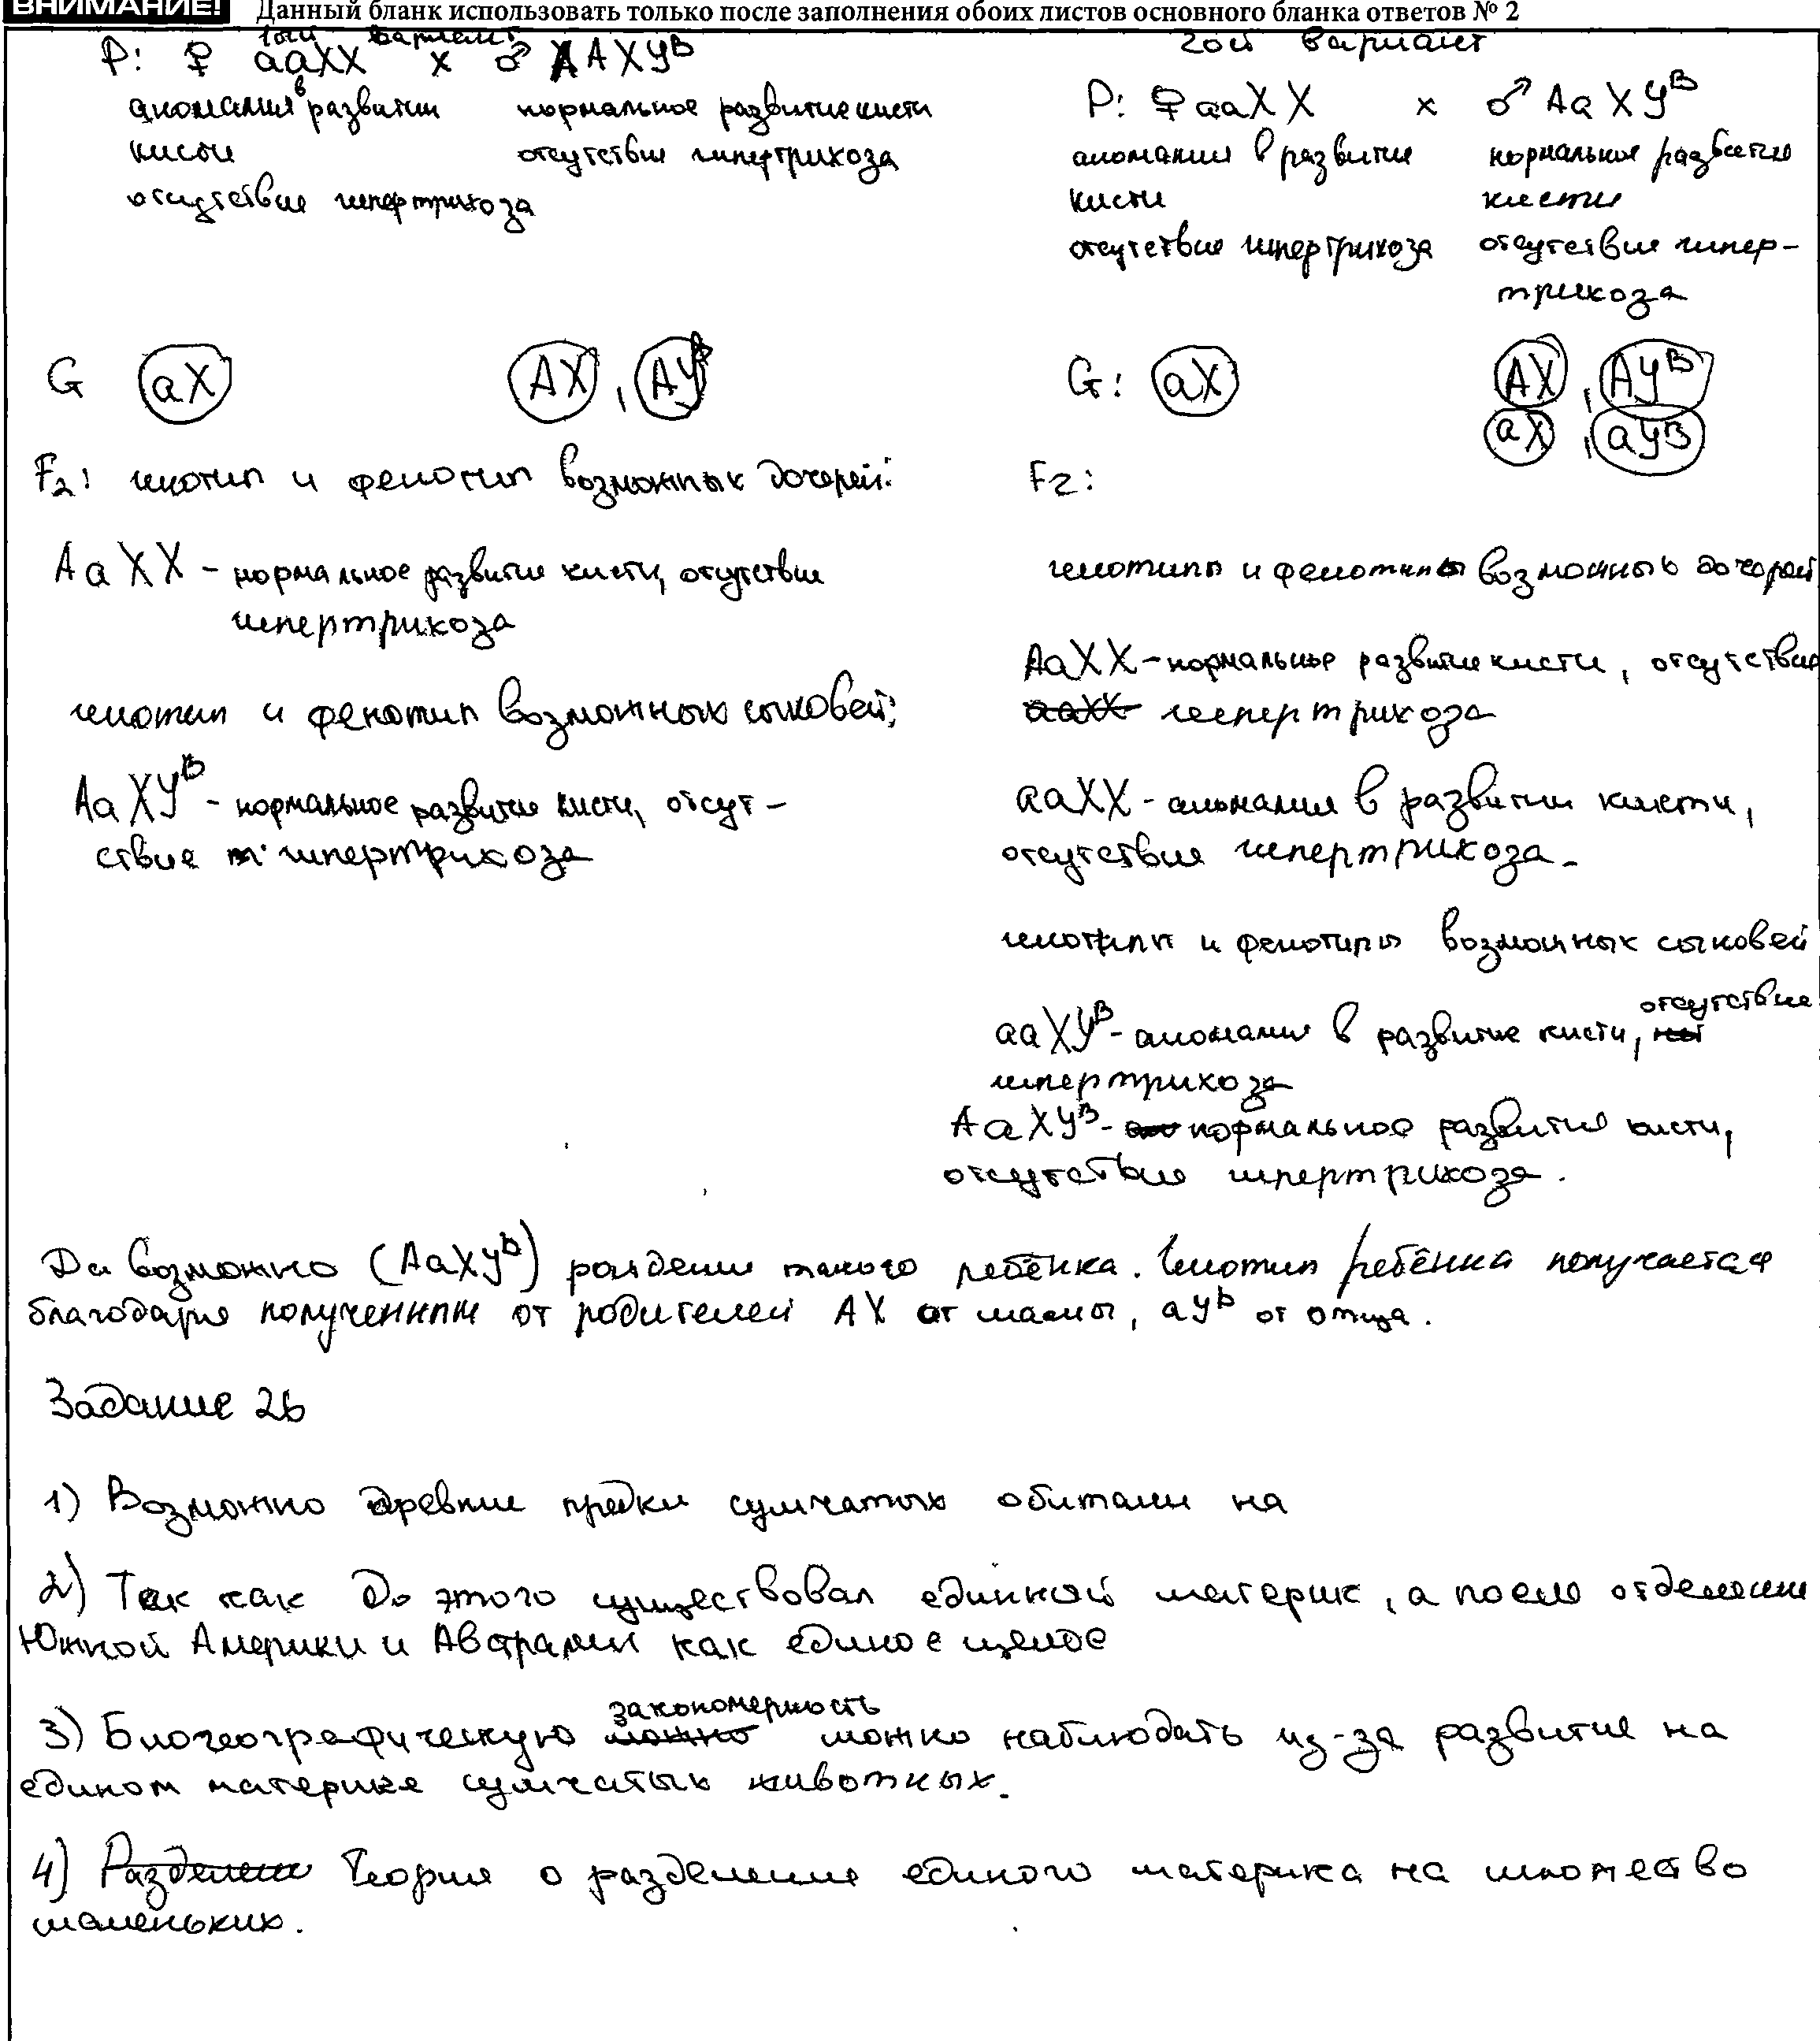 ВНИМАНИЕ! Данный бланк использовать только после заполнения обоих листов основного бланка ответов № 2
1ый вариант
P: ♀ aaXX x ♂ AAXY^B
аномалия в развитии
кисти
отсутствие гипертрихоза
нормальное развитие кисти
отсутствие гипертрихоза
G (aX) (AX), (AY^B)
F2: генотип и фенотип возможных дочерей:
AaXX - нормальное развитие кисти, отсутствие
гипертрихоза
генотип и фенотип возможных сыновей:
AaXY^B - нормальное развитие кисти, отсут-
ствие гипертрихоза
2ой вариант
P: ♀ aaXX x ♂ AaXY^B
аномалия в развитие
кисти
отсутствие гипертрихоза
нормальное развитие
кисти
отсутствие гипер-
трихоза
G: (aX) (AX), (AY^B)
(aX), (aY^B)
F2:
генотипы и фенотипы возможных дочерей
AaXX - нормальное развитие кисти, отсутствие
aaXX гипертрихоза
aaXX - аномалия в развитии кисти,
отсутствие гипертрихоза.
генотипы и фенотипы возможных сыновей
aaXY^B - аномалия в развитие кисти, отсутствие
гипертрихоза
AaXY^B - нормальное развитие кисти,
отсутствие гипертрихоза.
Да возможно (AaXY^b) рождение такого ребёнка. Генотип ребёнка получается
благодаря полученным от родителей AX от мамы, aY^b от отца.
Задание 26
1) Возможно древние предки сумчатых обитали на
2) Так как До этого существовал единный материк, а после отделение
Южной Америки и Австралии как единое целое
3) Биогеографическую закономерность можно наблюдать из-за развитие на
едином материке сумчатых животных.
4) Разделение Теория о разделение единого материка на множество
маленьких.